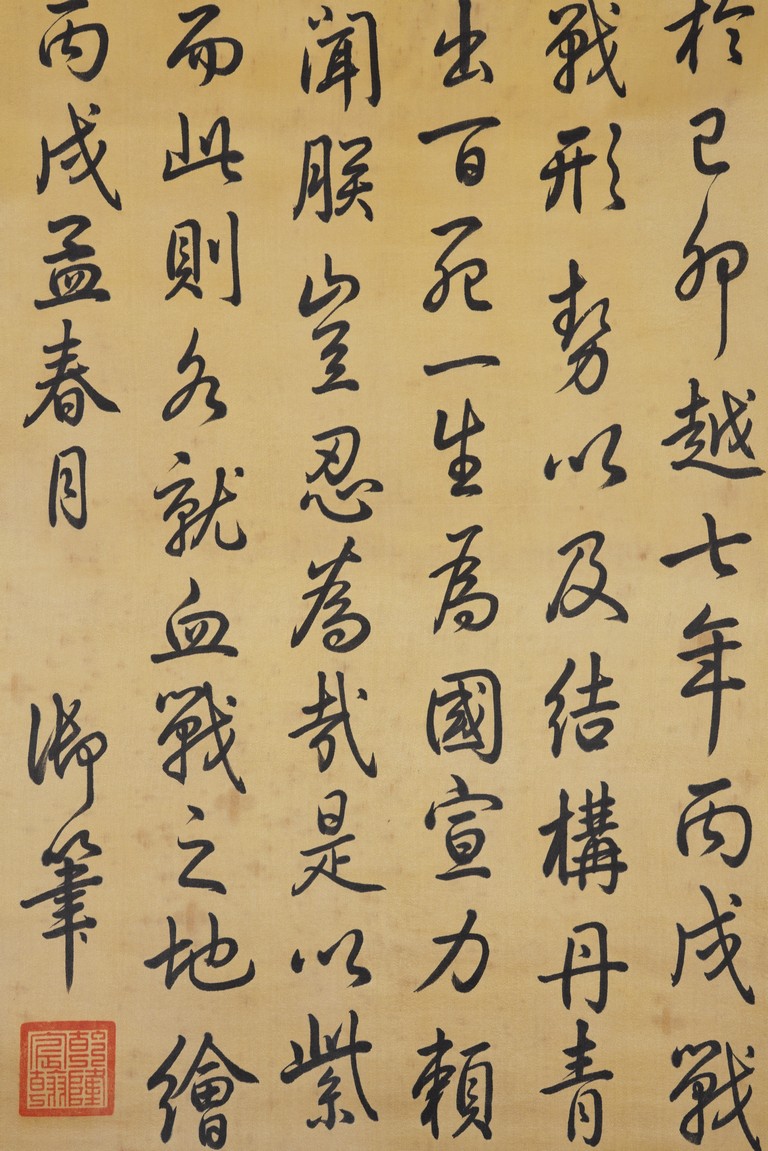 於己卯越七年丙戌戰
戰形勢以及結構丹青
出百死一生為國宣力賴
聞朕豈忍為哉是以紫
而此則各就血戰之地繪
丙戌孟春月 御筆
乾隆宸翰